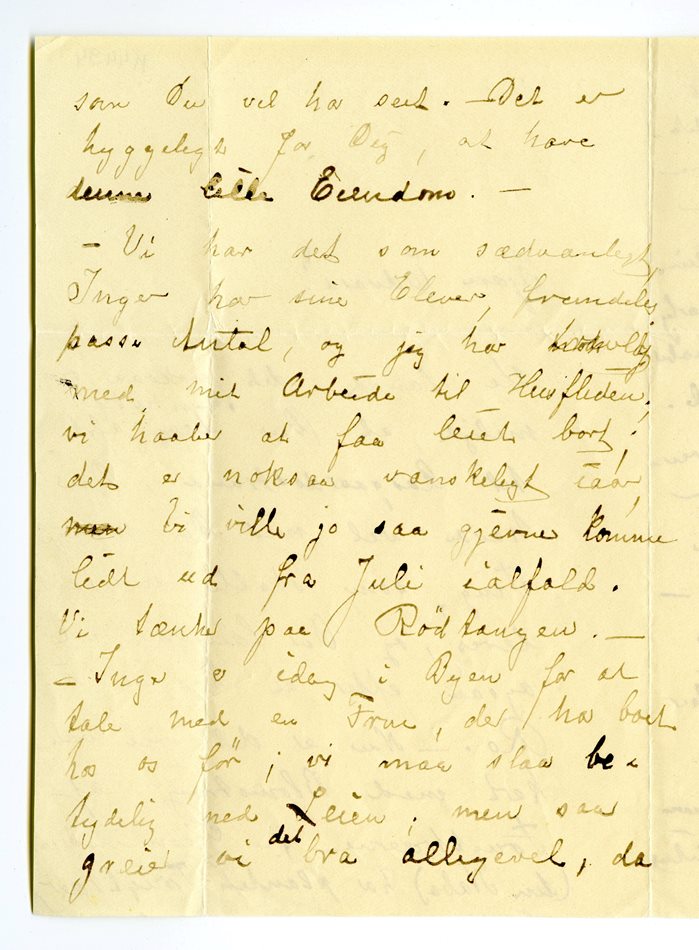 som Du vel har seet. – Det er
hyggeligt for Dig, at have
denne lille Eiendom. –
– Vi har det som sædvanligt,
Inger har sine Elever, fremdeles
passe Antal, og jeg har
med mit Arbeide til Husfliden;
vi haaber at faa leiet bort;
det er noksaa vanskeligt iaar,
Vi ville jo saa gjerne komme
lidt ud fra Juli ialfald.
Vi tænker paa Rödtangen. –
– Inger er idag i Byen for at
tale med en Frue, der har boet
hos os før; vi maa slaa be-
tydelig ned Leien; men saa
greier vi det bra alligevel, da